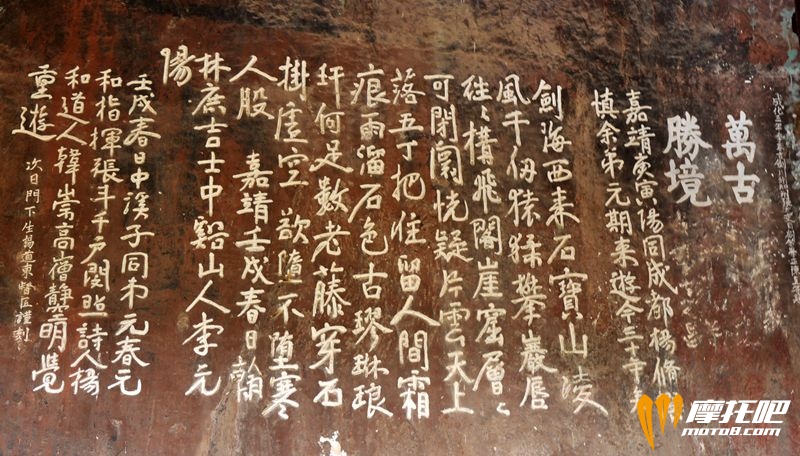 萬古
勝境
嘉靖庚寅陽同成都楊脩
慎余弟元期来遊今三十年
劍海西来石寶山凌
風千仞猿猱攀巖唇
往〻構飛閣崖窟層〻
可閉關恍疑片雲天上
落五丁把住留人間霜
痕雨溜石色古璆琳琅
玕何足數老藤穿石
掛虛空欲墮不堕寒
人股 嘉靖壬戌春日翰
林庶吉士中谿山人李元
陽
壬戌春日中溪子同弟元春元
和指揮張斗千戶閔煦詩人楊
和道人韓崇高僧静明覺
重遊
次日門下生楊道東督匠謹刻
摩托吧
moto8.com